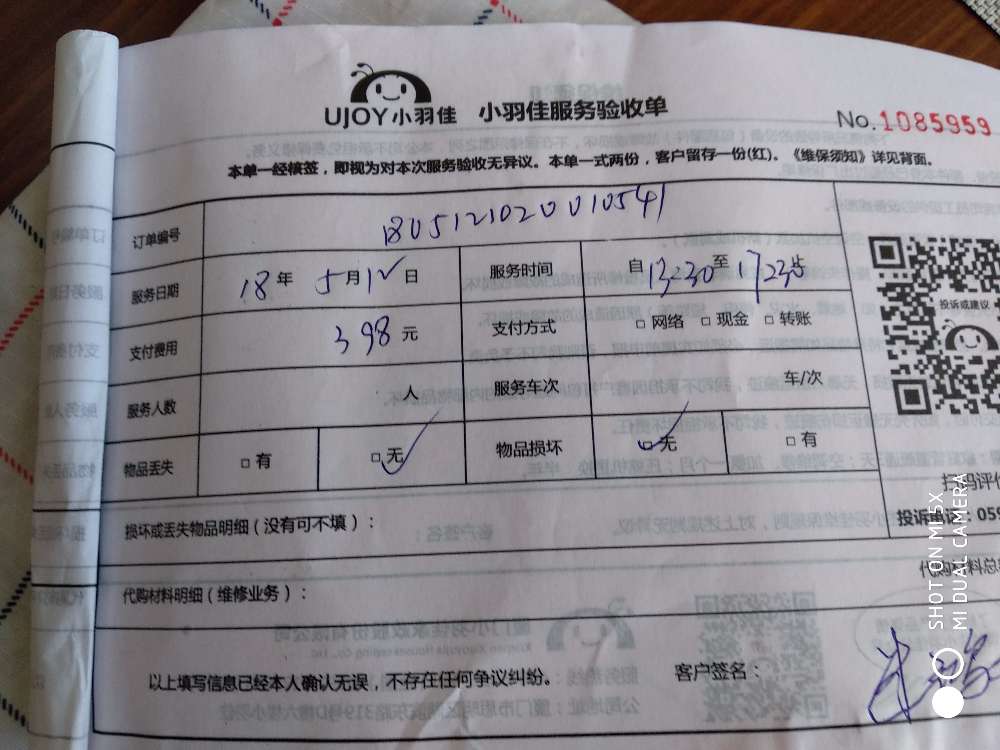 UJOY小羽佳 小羽佳服务验收单
No.1085959
本单一经核签，即视为对本次服务验收无异议。本单一式两份，客户留存一份(红)。《维保须知》详见背面。
订单编号 1805121020010541
服务日期 18年 5月12日 服务时间 自13:30至17:30
支付费用 398元 支付方式 □网络 □现金 □转账
服务人数 人 服务车次 车/次
物品丢失 □有 □无 物品损坏 □无 □有
投诉或建议
扫码评价
损坏或丢失物品明细（没有可不填）：
投诉电话：059
代购材料明细（维修业务）：
代购材料总
以上填写信息已经本人确认无误，不存在任何争议纠纷。 客户签名：
SHOT ON MI 5X
MI DUAL CAMERA